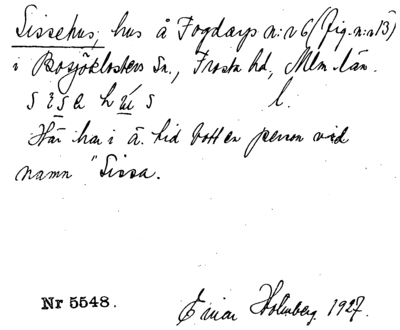 Sissehus, hus å Fogdarps n:r 6 (fig. n:r 13)
i Bosjöklosters Sn., Frosta hd, Mlm. län.
l.
Här har i ä. tid bott en person vid
namn "Sissa.
Nr 5548. Einar Holmberg. 1927.